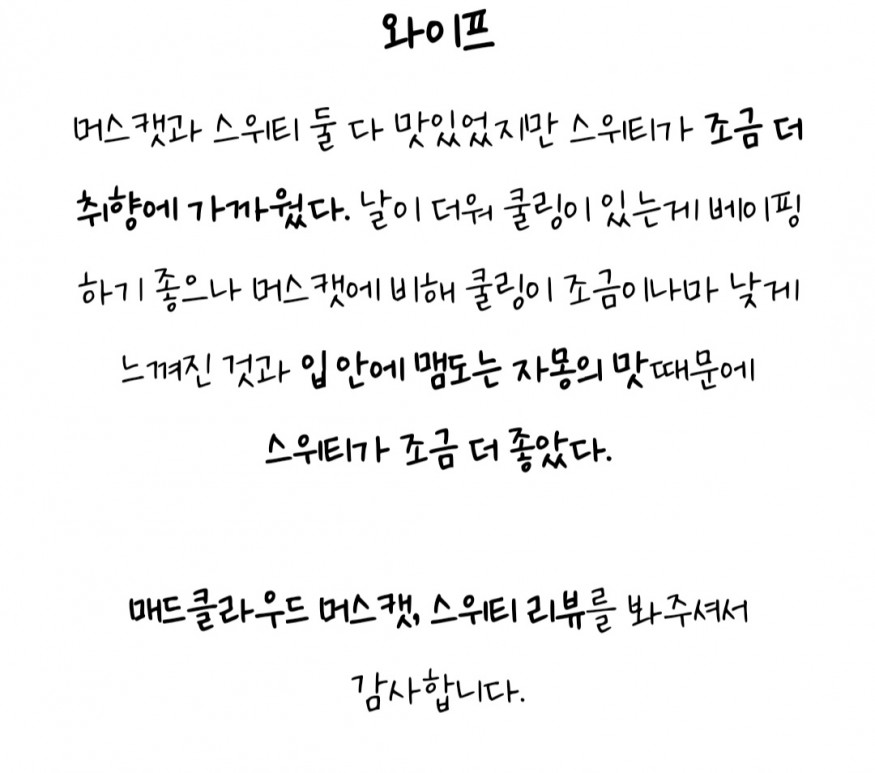 와이프
머스캣과 스위티 둘 다 맛있었지만 스위티가 조금 더
취향에 가까웠다. 날이 더워 쿨링이 있는게 베이핑
하기 좋으나 머스캣에 비해 쿨링이 조금이나마 낮게
느껴진 것과 입 안에 맴도는 자몽의 맛때문에
스위티가 조금 더 좋았다.
매드클라우드 머스캣, 스위티 리뷰를 봐주셔서
감사합니다.